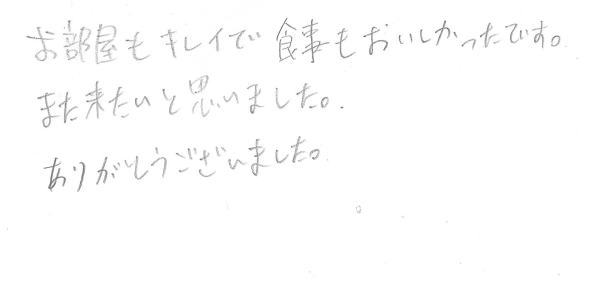 お部屋もキレイで食事もおいしかったです。
また来たいと思いました。
ありがとうございました。